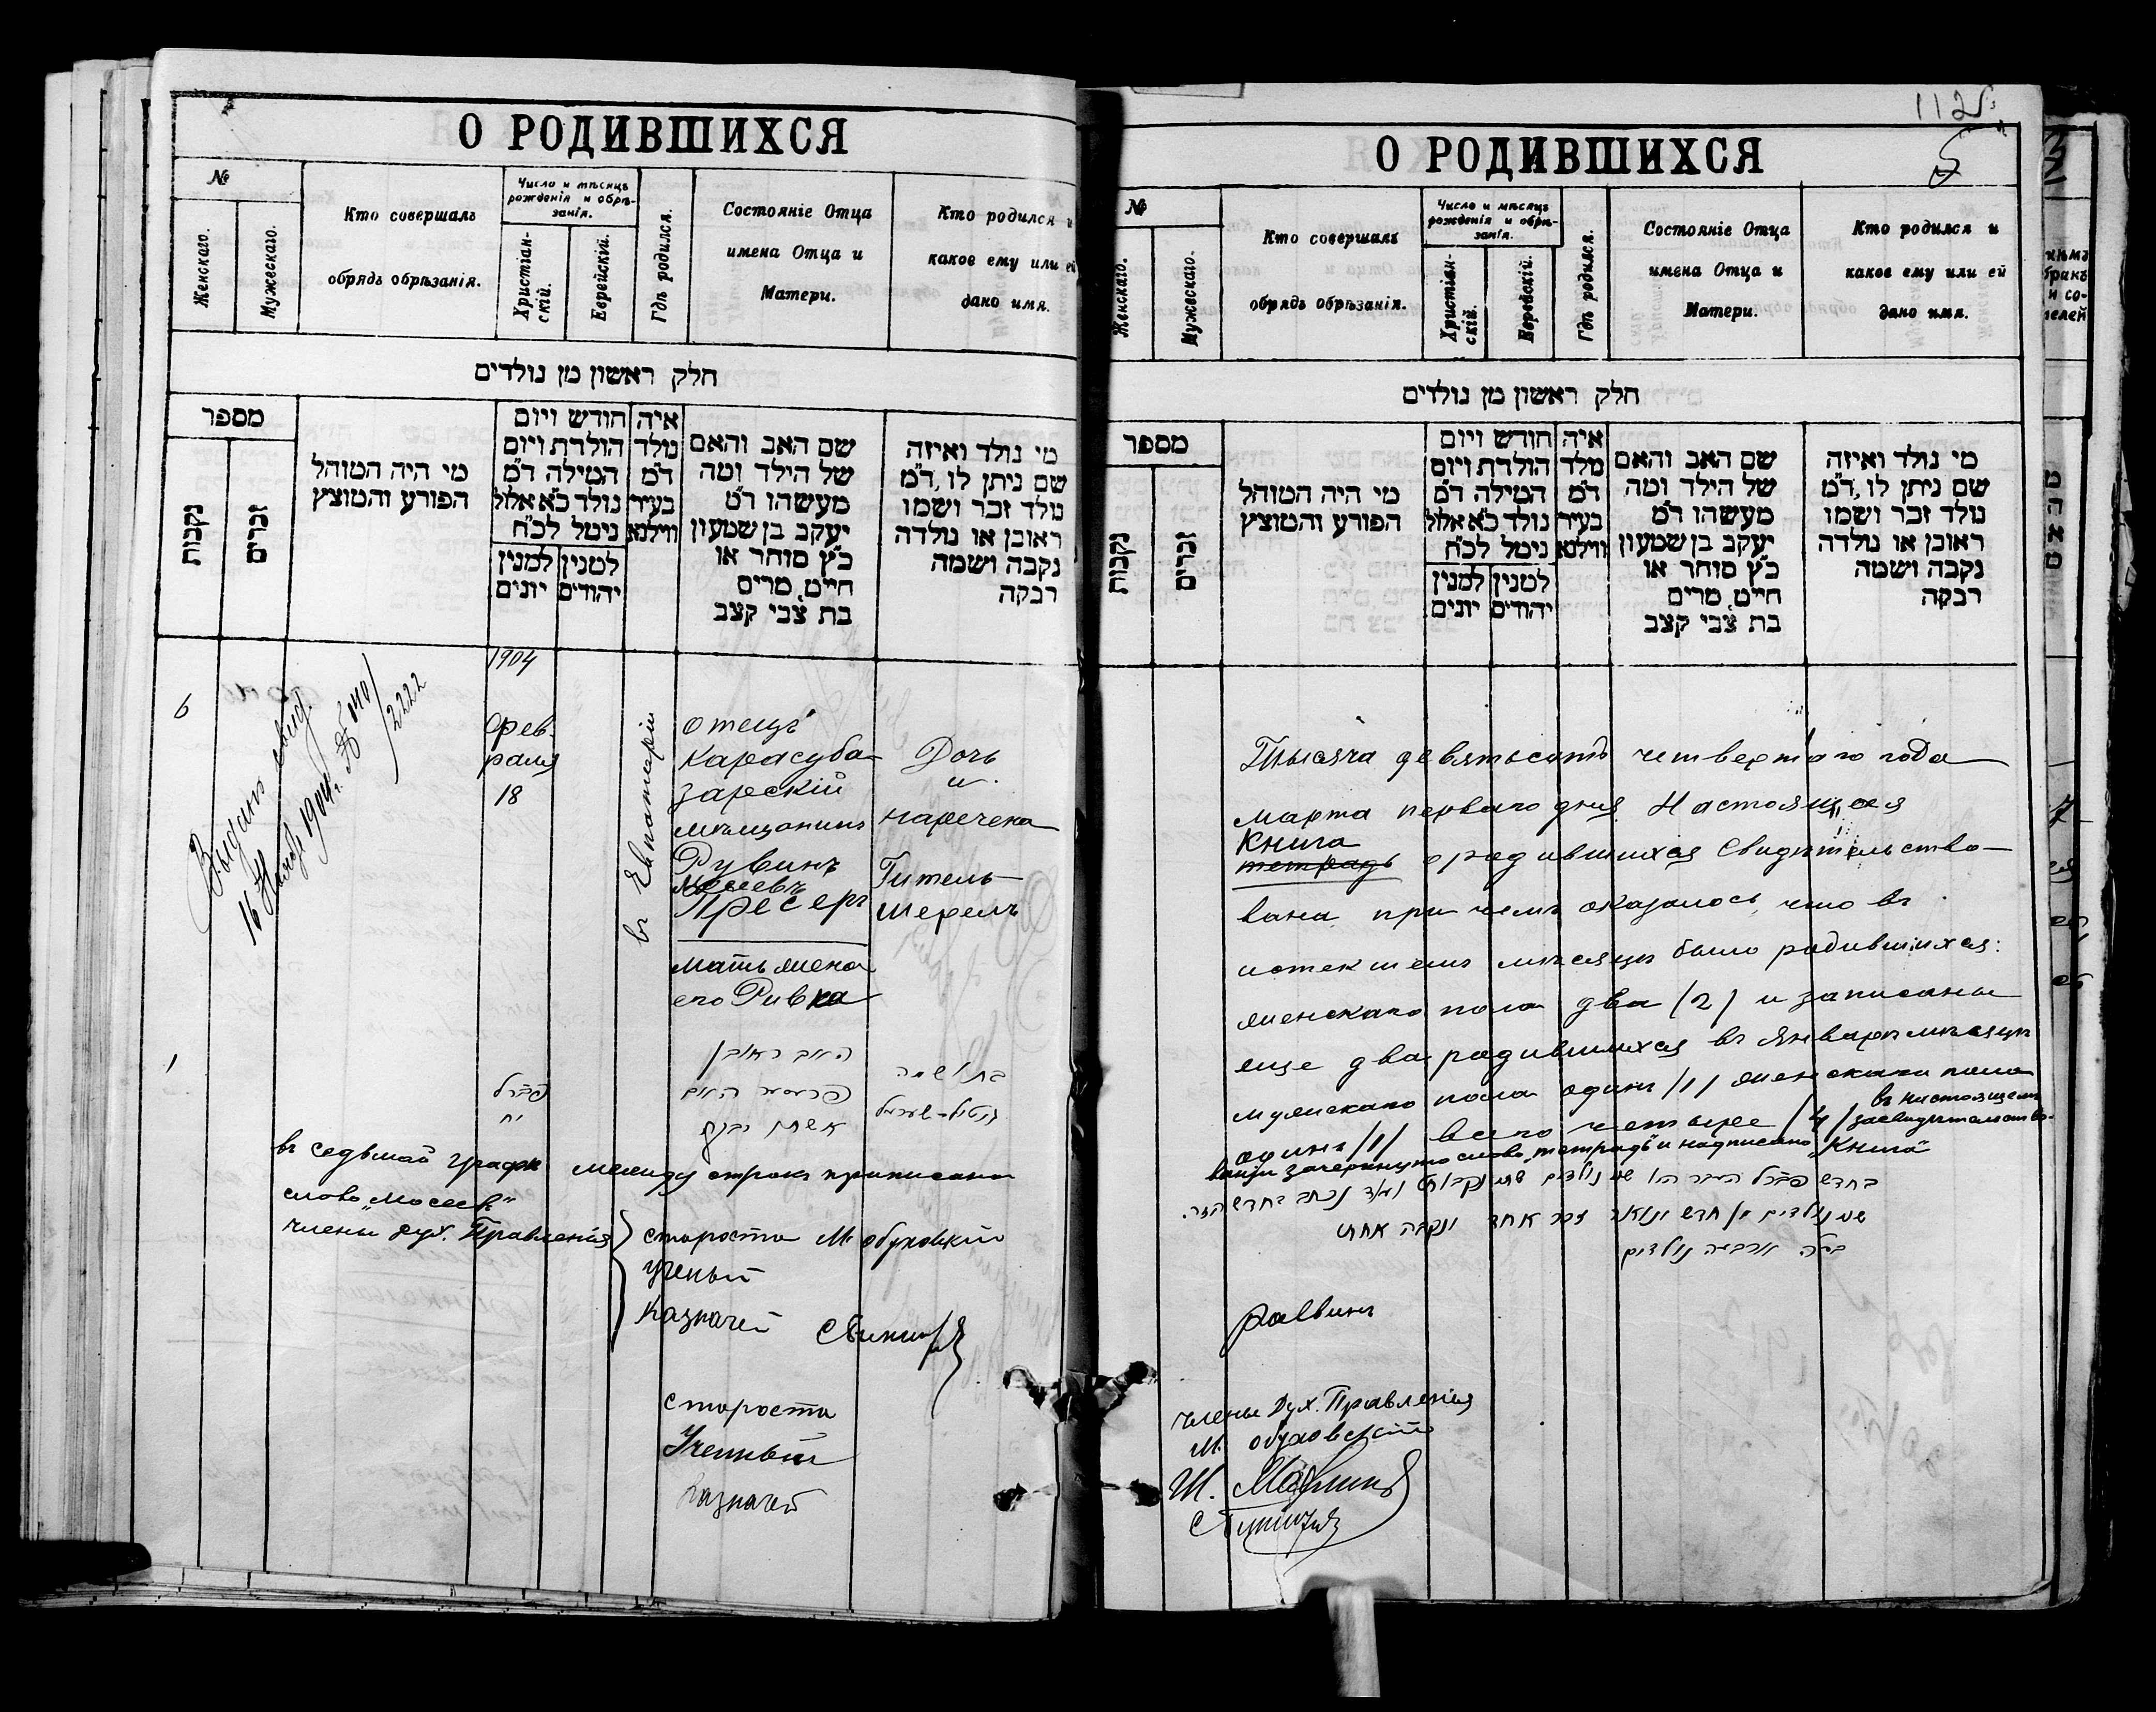 О РОДИВШИХСЯ
№
Женскаго.
Мужескаго.
Кто совершалъ
обрядъ обрѣзанія.
Число и мѣсяцъ
рожденія и обрѣ-
занія.
Христіан-
скій.
Еврейскій.
Гдѣ родился.
Состояніе Отца
имена Отца и
Матери.
Кто родился и
какое ему или ей
дано имя.
חלק ראשון מן נולדים
מספר
נקבות
זכרים
מי היה המוהל
הפורע והמוצץ
חודש ויום
הולדת ויום
המילה ד"מ
נולד כ"א אלול
נימל לכ"ח
למנין
יונים
למנין
יהודים
איה
נולד
ד"מ
בעיר
ווילנא
שם האב והאם
של הילד ומה
מעשהו ד"מ
יעקב בן שמעון
כ"ץ סוחר או
חייט, מרים
בת צבי קצב
מי נולד ואיזה
שם ניתן לו, ד"מ
נולד זכר ושמו
ראובן או נולדה
נקבה ושמה
רבקה
6
Выданъ свид.
16 1904 г. №
2222
1904
Фев-
раля
18
въ Евпаторіи
отецъ
Карасуба-
зарскій
мѣщанинъ
Рувинъ
Мосеевъ
Пресеръ
мать жена
его Ривка
Дочь
и
наречена
Гитель
Шерель
1
פברל
יח
האב ראובן
פרעסער האם
אשתו רבקה
בת ושמה
גיטיל-שערעל
въ седьмой графѣ между строкъ приписано
слово „Мосеев."
Члены Дух. Правленія
староста М. Обуховскій
ученый
Казначей
староста
Ученый
Казначей
112
О РОДИВШИХСЯ
5
№
Женскаго.
Мужескаго.
Кто совершалъ
обрядъ обрѣзанія.
Число и мѣсяцъ
рожденія и обрѣ-
занія.
Христіан-
скій.
Еврейскій.
Гдѣ родился.
Состояніе Отца
имена Отца и
Матери.
Кто родился и
какое ему или ей
дано имя.
חלק ראשון מן נולדים
מספר
נקבות
זכרים
מי היה המוהל
הפורע והמוצץ
חודש ויום
הולדת ויום
המילה ד"מ
נולד כ"א אלול
נימל לכ"ח
למנין
יונים
למנין
יהודים
איה
נולד
ד"מ
בעיר
ווילנא
שם האב והאם
של הילד ומה
מעשהו ד"מ
יעקב בן שמעון
כ"ץ סוחר או
חייט, מרים
בת צבי קצב
מי נולד ואיזה
שם ניתן לו, ד"מ
נולד זכר ושמו
ראובן או נולדה
נקבה ושמה
רבקה
Тысяча девятьсотъ четвертаго года
марта перваго дня Настоящая
Книга
тетрадь о родившихся Свидѣтельство-
вана при чемъ оказалось, что въ
истекшемъ мѣсяцѣ было родившихся:
женскаго пола два /2/ и записаны
еще два родившихся въ Январѣ мѣсяцѣ
мужскаго пола одинъ /1/ женскаго пола
одинъ /1/ всего четыре /4/ въ настоящемъ
засвидѣтельство-
ваніи зачеркнуто слово „тетрадь" и надписано „Книга"
שני נולדים מן חדש ינואר זכר אחד ונקבה אחת
ארבעה נולדים
Раввинъ
Члены Дух. Правленія
М. Обуховскій
Ш.